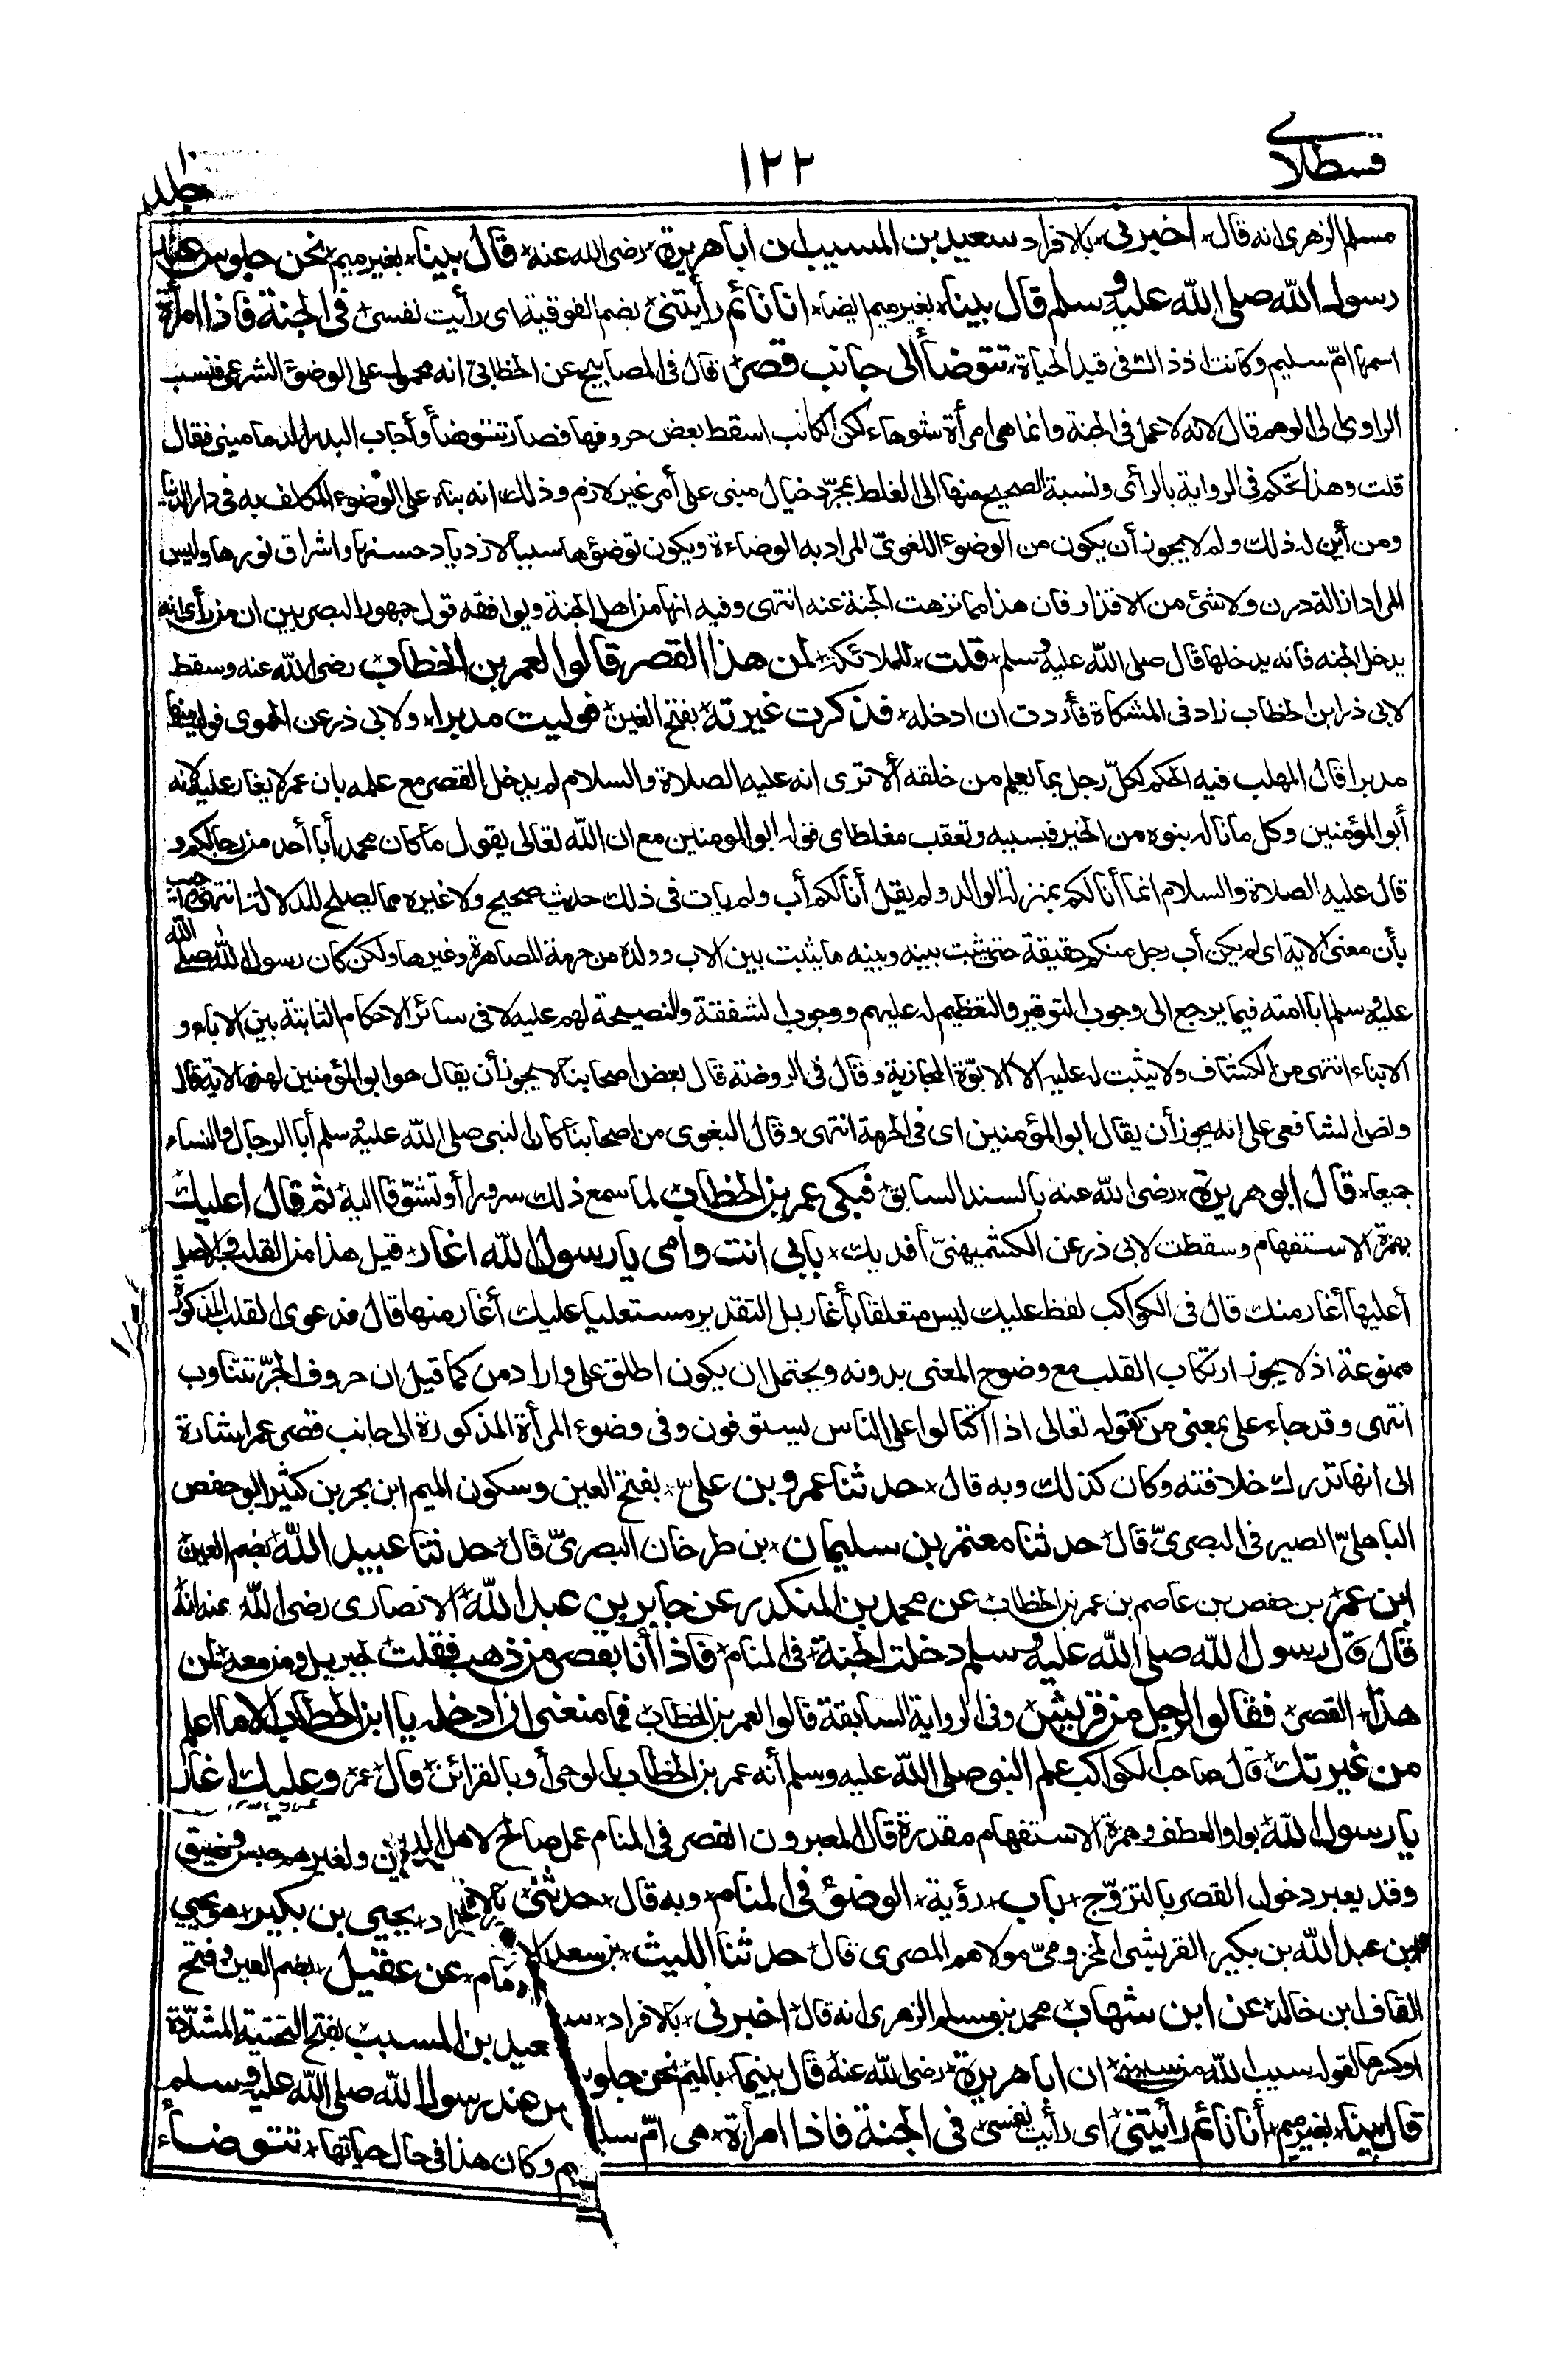 قسطلانی
١٢٢
جلد ١٠
مسلم الزهری انه قال * اخبرنی * بالافراد سعید بن المسیب ان اباهریرة * رضی الله عنه * قال بینا * بغیر میم * نحن جلوس عند
رسول الله صلی الله علیه و سلم قال بینا * بغیر میم ایضا * انا نائم رأیتنی * بضم الفوقیة ای رأیت نفسی * فی الجنة فاذا امرأة
اسمها امّ سلیم وكانت اذ ذاك فی قید الحیاة * تتوضأ الی جانب قصر * قال فی المصابیح عن الخطابیّ انه محمول علی الوضوء الشرعی فنسب
الراوی الی الوهم قال لانه لا عمل فی الجنة وانما هی امرأة شوهاء لكن الكاتب اسقط بعض حروفها فصار تتوضأ وأجاب البدر الدمامینی فقال
قلت وهذا تحكم فی الروایة بالرأی ونسبة الصحیح منها الی الغلط بمجرّد خیال مبنی علی أمر غیر لازم وذلك انه بناه علی الوضوء المكلف به فی دار الدنیا
ومن أین له ذلك ولم لا یجوز أن یكون من الوضوء اللغویّ المراد به الوضاءة ویكون توضؤها سببا لازدیاد حسنها واشراق نورها ولیس
المراد ازالة درن ولا شئ من الاقذار فان هذا مما نزهت الجنة عنه انتهی وفیه انها من اهل الجنة ویوافقه قول جمهور البصریین ان من رأی انه
یدخل الجنه فانه یدخلها قال صلی الله علیه و سلم * قلت * للملائكة * لمن هذا القصر قالوا لعمر بن الخطاب * رضی الله عنه وسقط
لابی ذر ابن الخطاب زاد فی المشكاة فأردت ان ادخله * فذكرت غیرته * بفتح الغین * فولیت مدبرا * ولابی ذر عن الحموی فولیت منها
مدبرا قال المهلب فیه الحكم لكلّ رجل بما یعلم من خلقه ألا تری انه علیه الصلاة والسلام لم یدخل القصر مع علمه بان عمر لا یغار علیه لانه
أبو المؤمنین وكل ما نال بنوه من الخیر فبسببه وتعقب مغلطای قوله ابو المومنین مع ان الله تعالی یقول ما كان محمد أبا أحد من رجالكم و
قال علیه الصلاة والسلام انما أنا لكم بمنزلة الوالد ولم یقل أنا لكم أب ولم یات فی ذلك حدیث صحیح ولا غیره مما یصلح للدلالة انتهی واجیب
بأن معنی الایة ای لم یكن أب رجل منكم حقیقة حتی یثبت بینه وبینه ما یثبت بین الاب وولده من حرمة المصاهرة وغیرها ولكن كان رسول الله صلی الله
علیه و سلم ابا امته فیما یرجع الی وجوب التوقیر والتعظیم له علیهم ووجوب الشفقة والنصیحة لهم علیه لا فی سائر الاحكام الثابتة بین الاباء و
الابناء انتهی من الكشاف ولا یثبت له علیه الا الابوّة المجازیة وقال فی الروضة قال بعض اصحابنا لا یجوز أن یقال هو ابو المؤمنین لهذه الایة قال
ونص الشافعی علی انه یجوز أن یقال ابو المؤمنین ای فی الحرمة انتهی وقال البغوی من اصحابنا كان النبی صلی الله علیه و سلم أبا الرجال والنساء
جمیعا * قال ابو هریرة * رضی الله عنه بالسند السابق * فبكی عمر بن الخطاب * لما سمع ذلك سرورا أو تشوّقا الیه * ثم قال اعلیك
بهمزة الاستفهام وسقطت لابی ذر عن الكشمیهنیّ أفدیك * بابی انت وامی یا رسول الله اغار * قیل هذا من القلب والاصل
أعلیها أغار منك قال فی الكواكب لفظ علیك لیس متعلقا بأغار بل التقدیر مستعلیا علیك أغار منها قال فدعوی القلب المذكورة
ممنوعة اذ لا یجوز ارتكاب القلب مع وضوح المعنی بدونه ویحتمل ان یكون اطلق علی واراد من كما قیل ان حروف الجرّ تتناوب
انتهی وقد جاء علی بمعنی من كقوله تعالی اذا اكتالوا علی الناس یستوفون وفی وضوء المرأة المذكورة الی جانب قصر عمر اشارة
الی انها تدرك خلافته وكان كذلك وبه قال * حدثنا عمرو بن علی * بفتح العین وسكون المیم ابن بحر بن كثیر ابو حفص
الباهلیّ الصیرفی البصریّ قال * حدثنا معتمر بن سلیمان * بن طرخان البصریّ قال * حدثنا عبید الله * بضم العین
ابن عمر * بن حفص بن عاصم بن عمر بن الخطاب * عن محمد بن المنكدر عن جابر بن عبد الله * الانصاری رضی الله عنه انه
قال قال رسول الله صلی الله علیه و سلم دخلت الجنة * فی المنام * فاذا أنا بقصر من ذهب فقلت * لجبریل ومن معه * لمن
هذا * القصر * فقالوا لرجل من قریش * وفی الروایة السابقة قالوا لعمر بن الخطاب * فما منعنی ان ادخله یا ابن الخطاب الا ما اعلم
من غیرتك * قال صاحب الكواكب علم النبی صلی الله علیه وسلم أنه عمر بن الخطاب بالوحی أو بالقرائن * قال * عمر * وعلیك اغار
یا رسول الله * بواو العطف وهمزة الاستفهام مقدرة قال المعبرون القصر فی المنام عمل صالح لاهل الدین ولغیرهم حبس وضیق
وقد یعبر دخول القصر بالتزوّج * باب * رؤیة * الوضوء فی المنام * وبه قال * حدثنی * بالافراد * یحیی بن بكیر * هو یحیی
ابن عبد الله بن بكیر القریشی المخزومیّ مولاهم المصری قال * حدثنا اللیث * بن سعد الامام * عن عقیل * بضم العین وفتح
القاف ابن خالد * عن ابن شهاب * محمد بن مسلم الزهری انه قال * اخبرنی * بالافراد * سعید بن المسیب * بفتح التحتیة المشدّدة
او كسرها لقوله سیب الله من سیبنی * ان اباهریرة * رضی الله عنه * قال بینما * بالمیم * نحن جلوس عند رسول الله صلی الله علیه و سلم
قال بینا * بغیر میم * أنا نائم رأیتنی * ای رأیت نفسی * فی الجنة فاذا امرأة * هی امّ سلیم وكان هذا فی حال حیاتها * تتوضأ